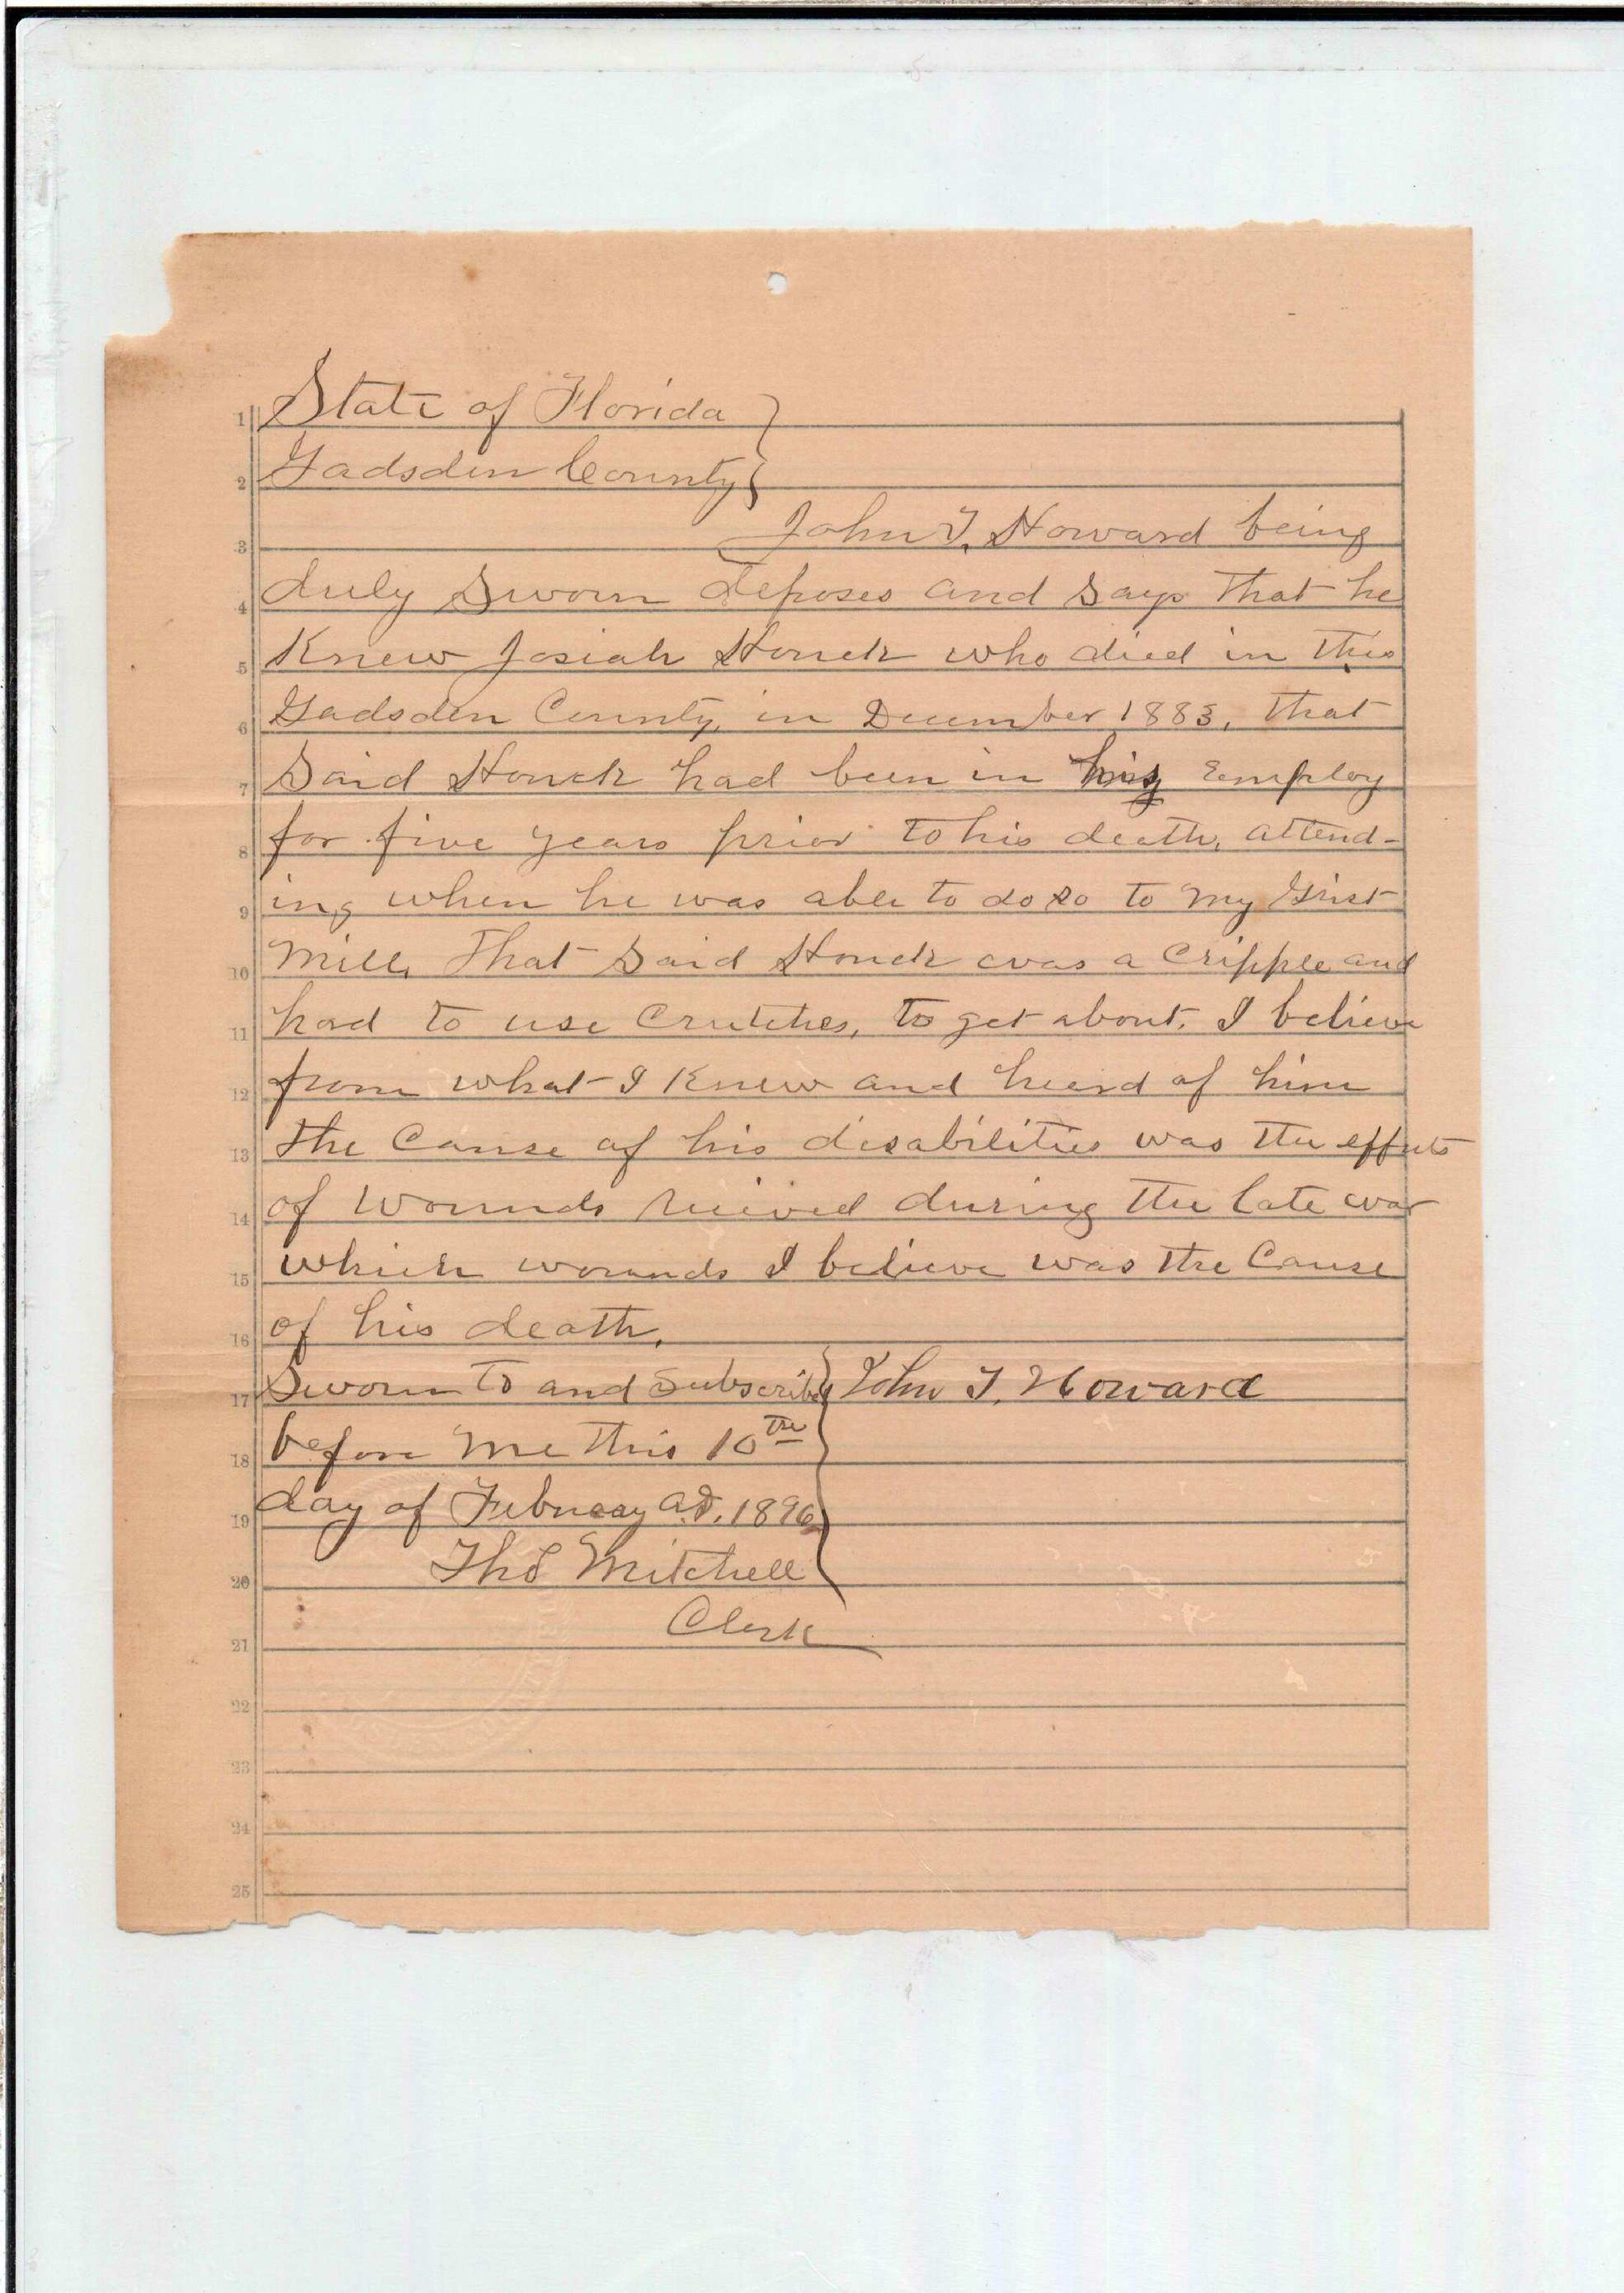 1 State of Florida }
2 Gadsden County }
3 John T. Howard being
4 duly Sworn deposes and Says that he
5 Knew Josiah Houck who died in this
6 Gadsden County, in December 1883, that
7 Said Houck had been in my Employ
8 for five years prior to his death, attend-
9 ing when he was able to do so to my Grist
10 Mill, That Said Houck was a Cripple and
11 had to use Crutches, to get about. I believe
12 from what I Knew and heard of him
13 the Cause of his disabilities was the effects
14 of Wounds reeived during the late war
15 which wounds I believe was the Cause
16 of his death.
17 Sworn to and Subscribed } John T. Howard
18 before me this 10th
19 day of February A.D. 1896
20 Thos Mitchell
21 Clerk
22
23
24
25